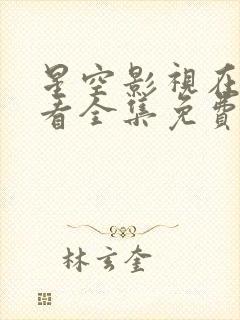 星空影視在
看全集免費
林玄奎